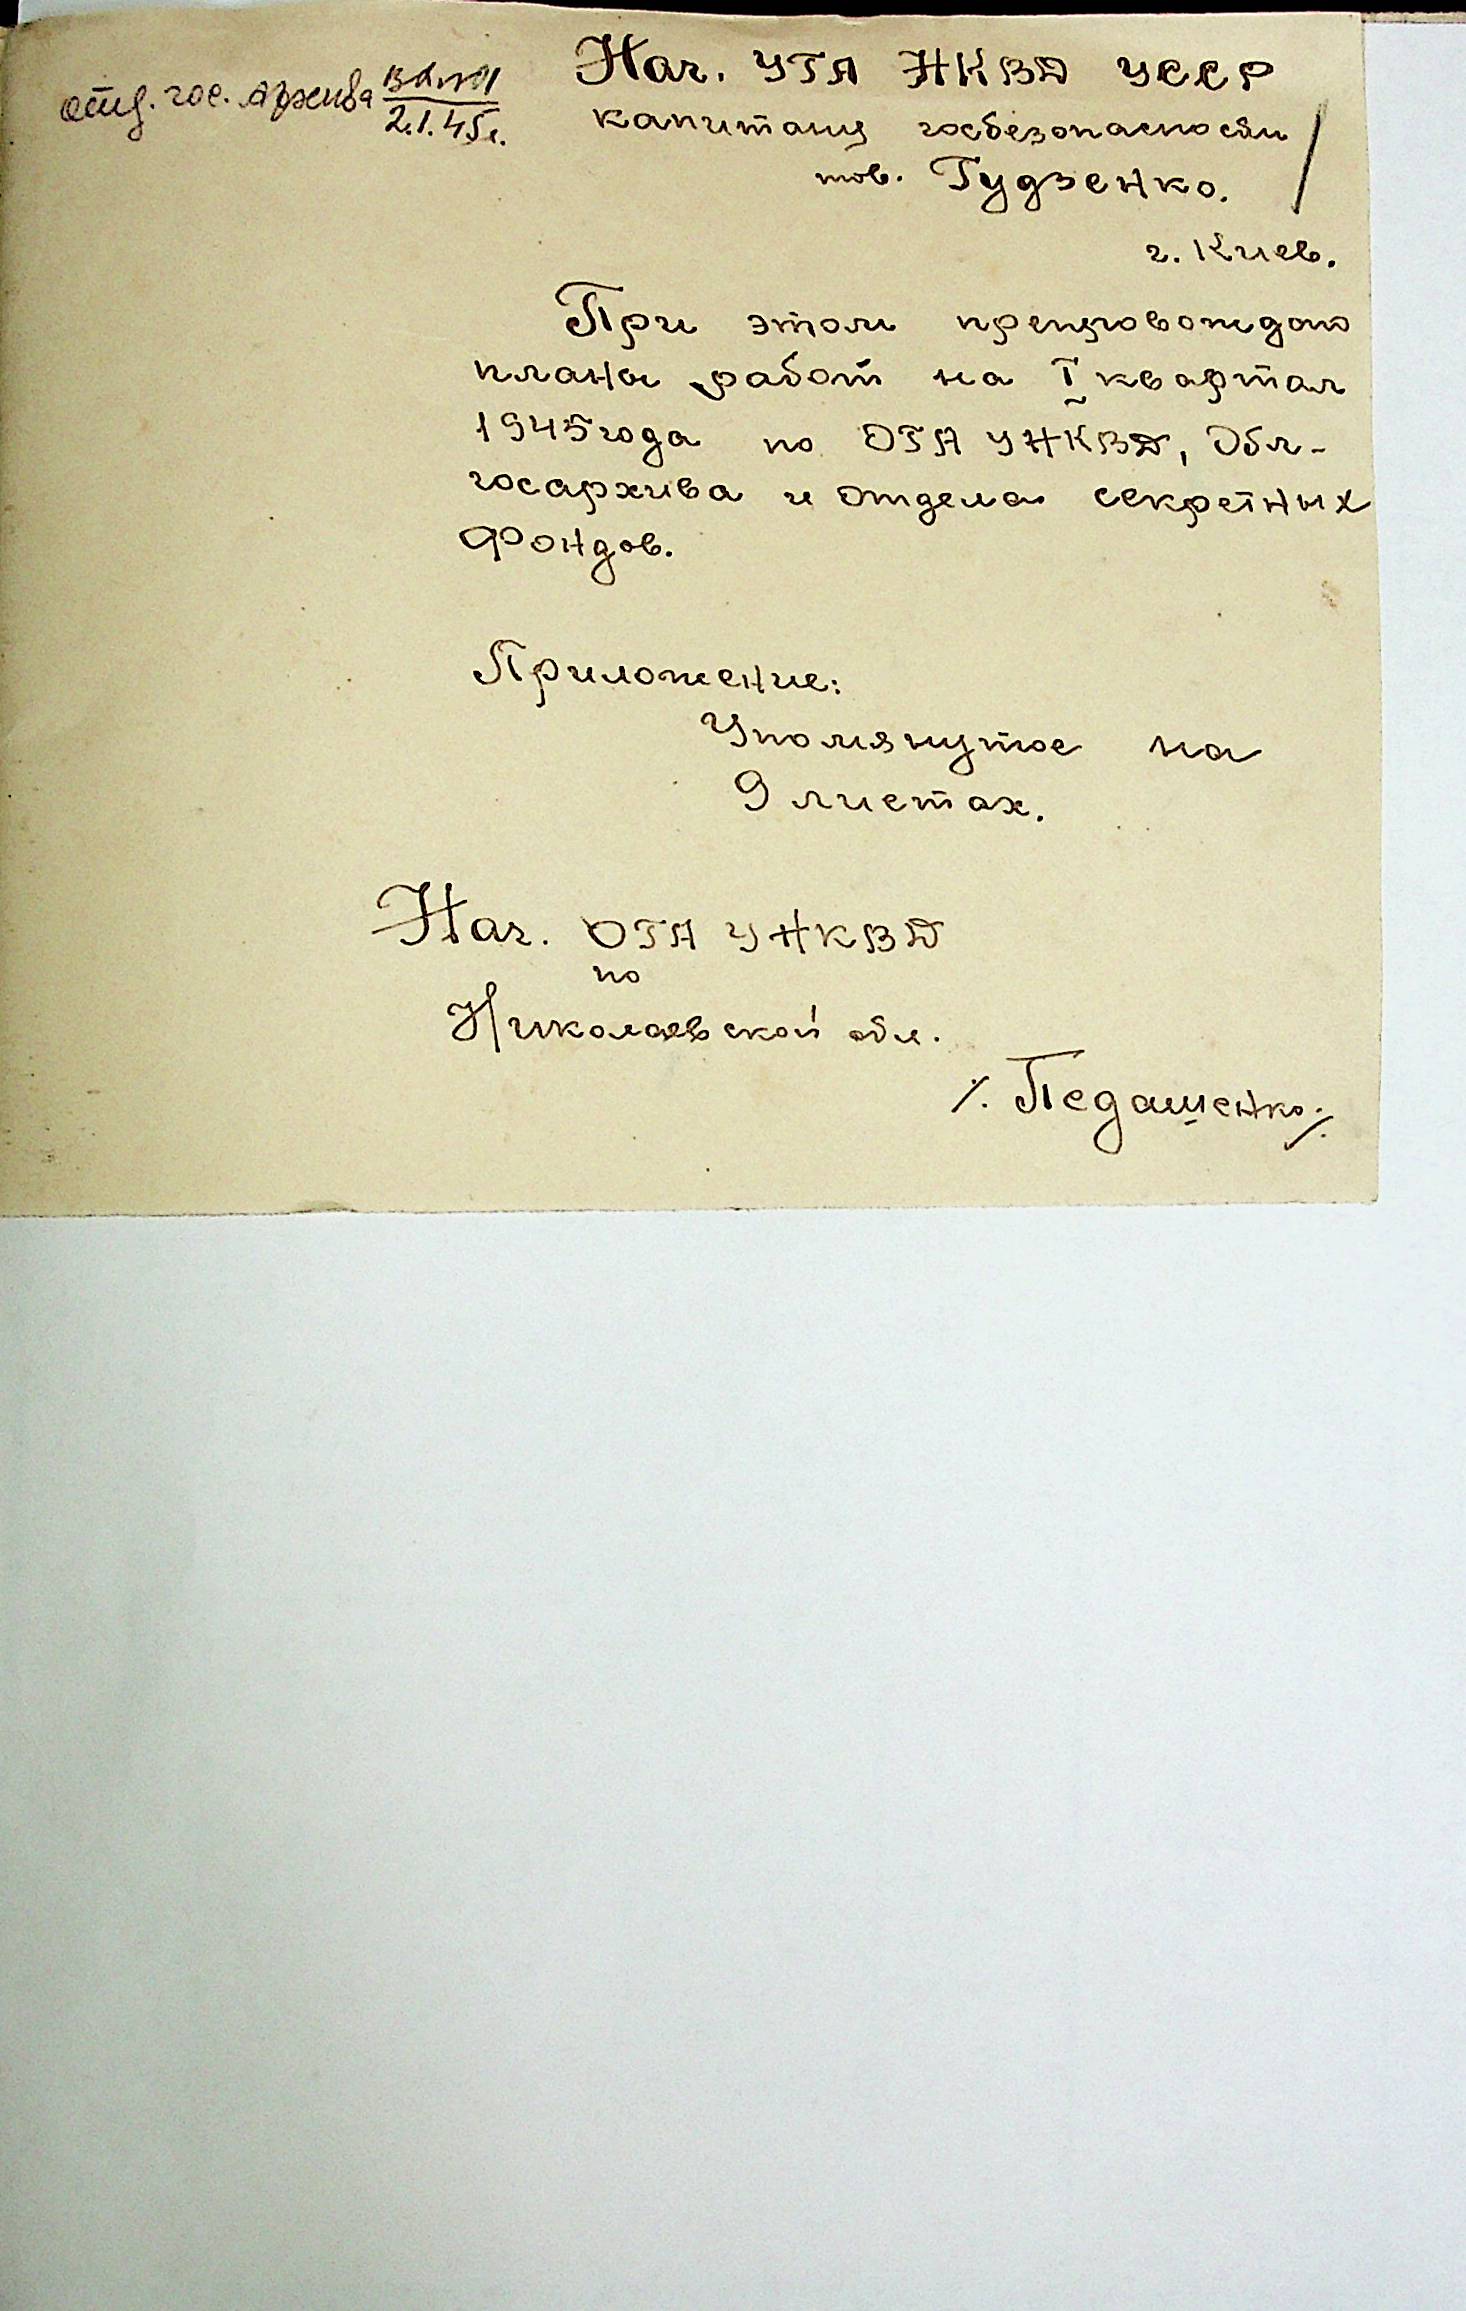 отд. гос. архива
2.1.45г.
Нач. УГА НКВД УССР
капитану госбезопасности
тов. Гудзенко.
г. Киев.
При этом препровождаю
планы работ на I квартал
1945 года по ОГА УНКВД, Обл-
госархива и отдела секретных
фондов.
Приложение:
Упомянутое на
9 листах.
Нач. ОГА УНКВД
по
Николаевской обл.
/. Педашенко./